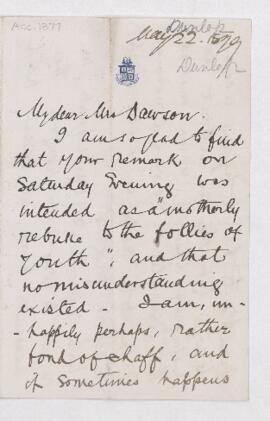 Acc. 1877
Dunlop
May 22. 1879
Dunlop
My dear Mrs Dawson.
I am so glad to find
that your remark on
Saturday Evening was
intended as a "motherly
rebuke to the follies of
youth", and that
no misunderstanding
existed - I am, un-
-happily perhaps, rather
fond of chaff, and
it sometimes happens